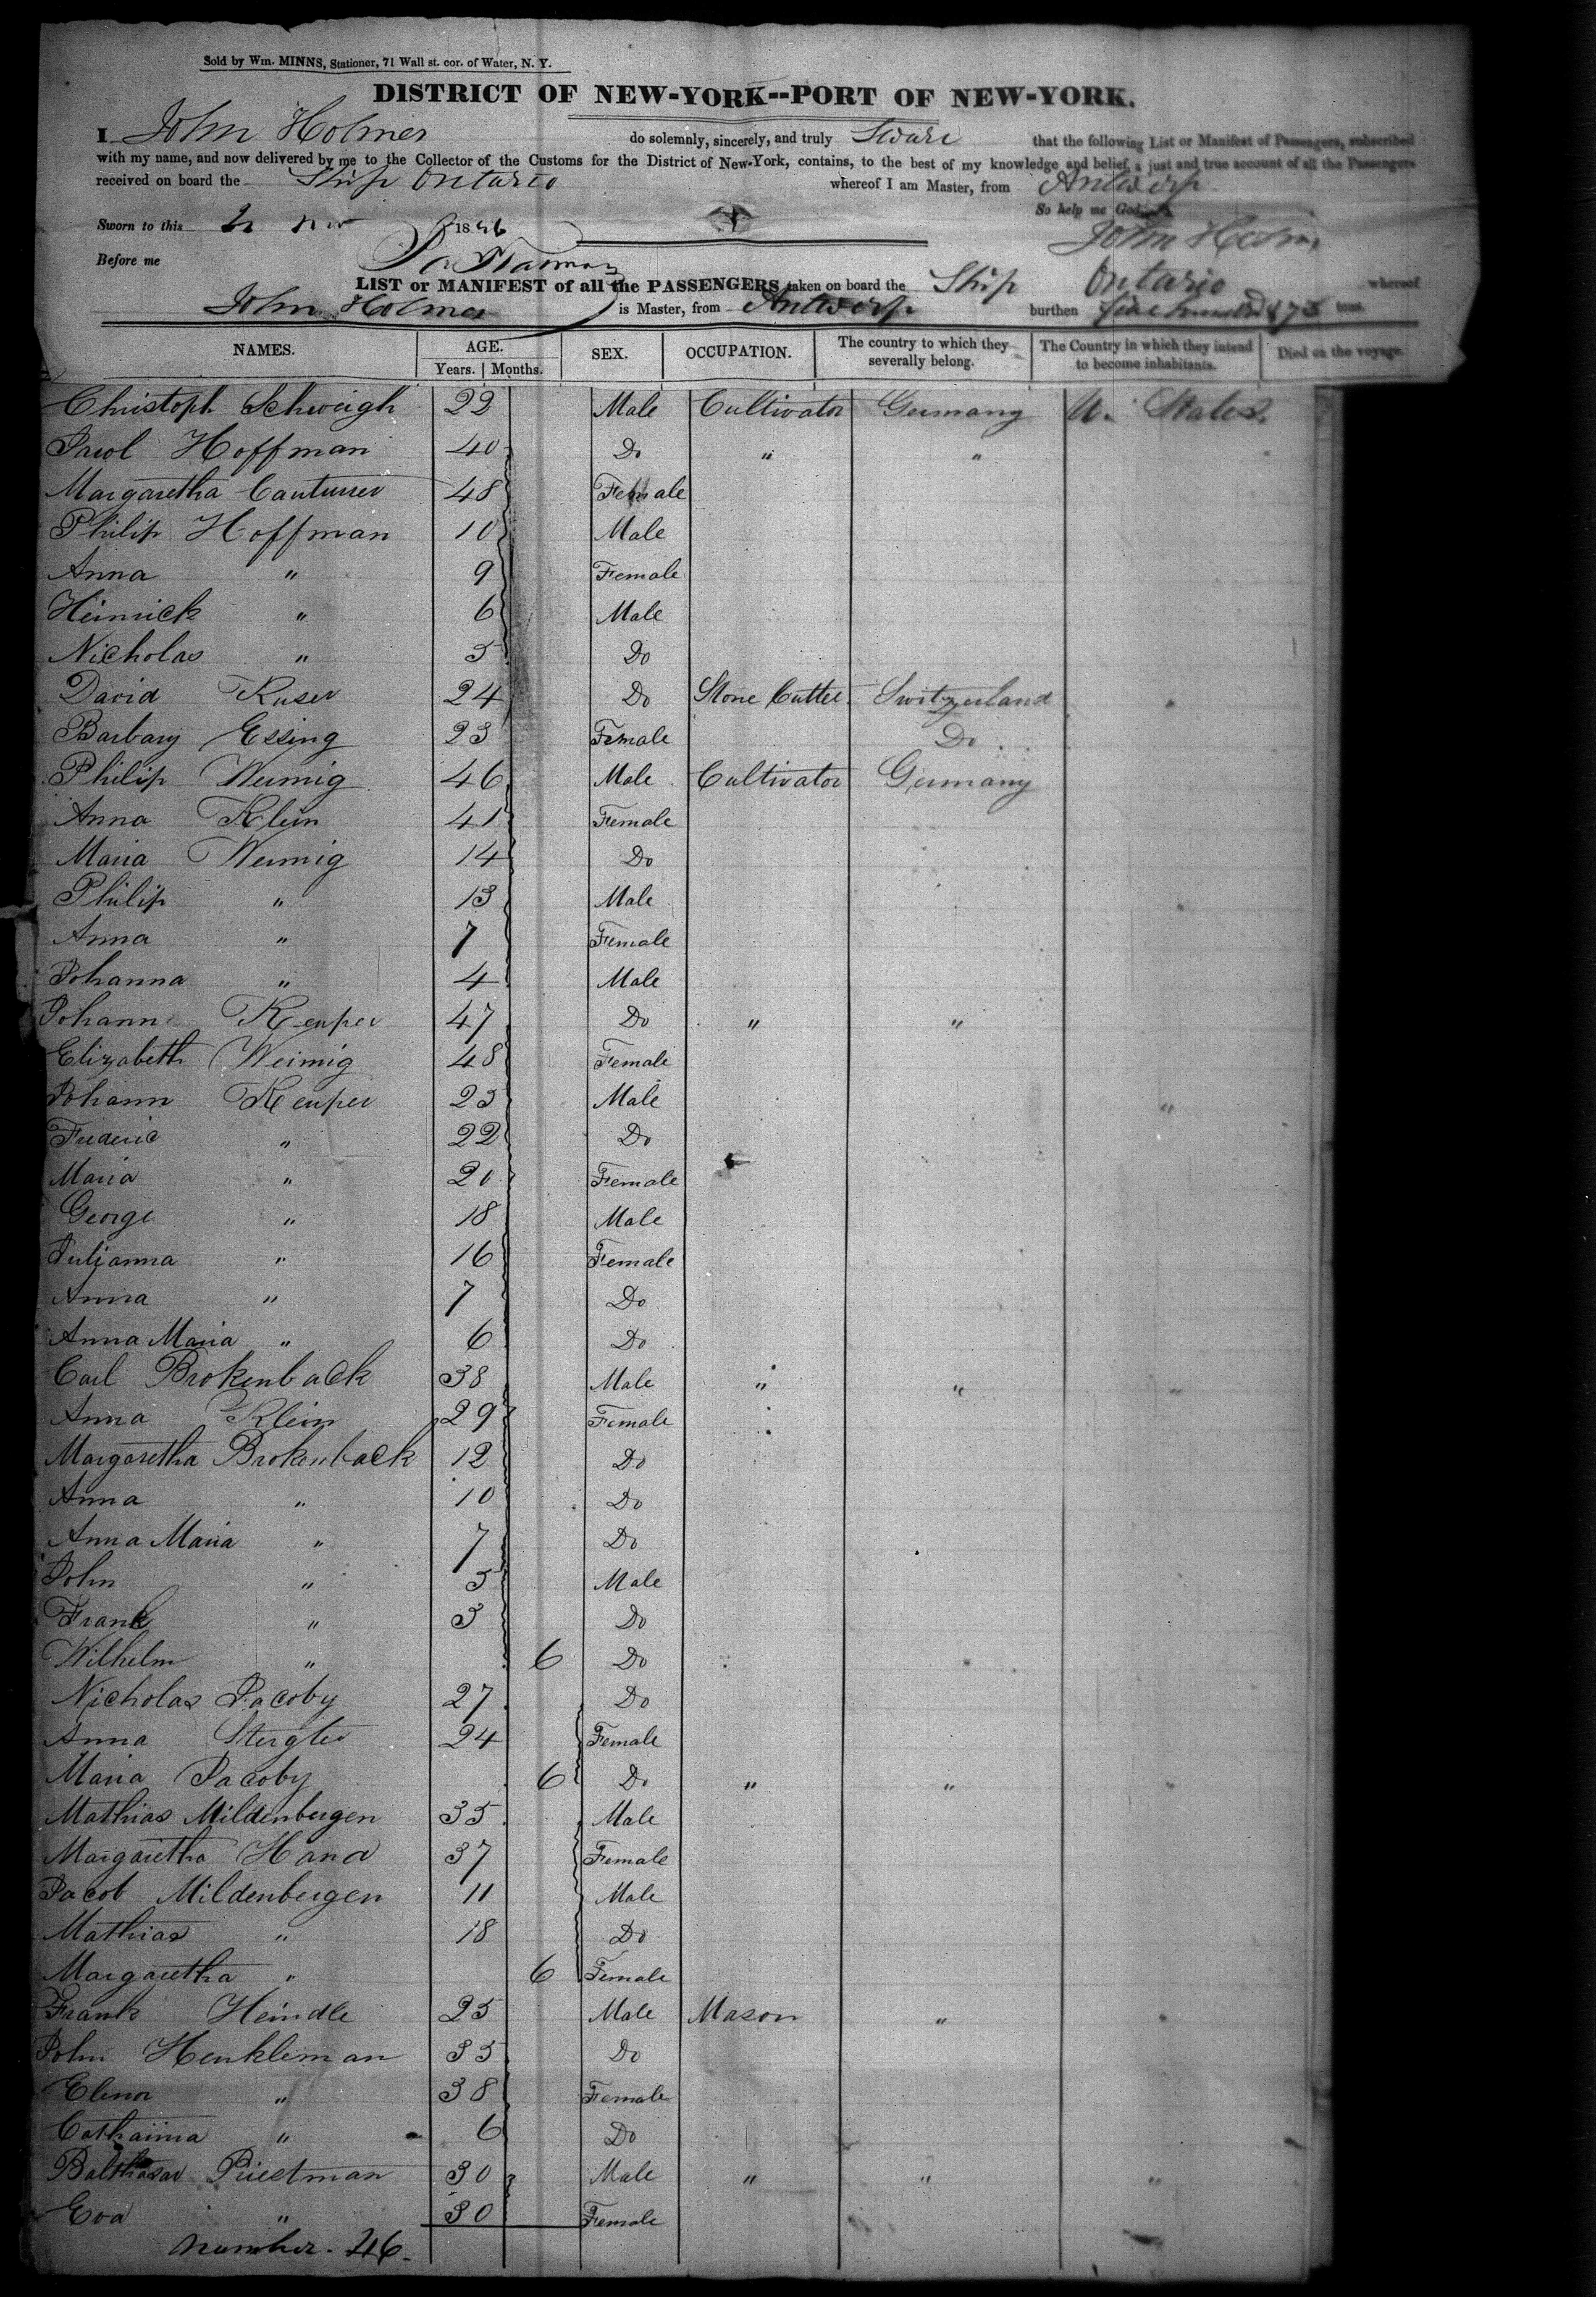 Sold by Wm. MINNS, Stationer, 71 Wall st. cor. of Water, N. Y.
DISTRICT OF NEW-YORK--PORT OF NEW-YORK.
I John Holmes do solemnly, sincerely, and truly Sware that the following List or Manifest of Passengers, subscribed
with my name, and now delivered by me to the Collector of the Customs for the District of New-York, contains, to the best of my knowledge and belief, a just and true account of all the Passengers
received on board the Ship Ontario whereof I am Master, from Antwerp
So help me God
Sworn to this 2 1846
John Holmes
Before me
LIST or MANIFEST of all the PASSENGERS taken on board the Ship Ontario whereof
John Holmes is Master, from Antwerp burthen tons
NAMES. AGE. SEX. OCCUPATION. The country to which they severally belong. The Country in which they intend to become inhabitants. Died on the voyage.
Years. Months.
Christoph Schweigh 22 Male Cultivator Germany U. States.
Jacob Hoffman 40 Do " "
Margaretha 48 Female
Philip Hoffman 10 Male
Anna " 9 Female
Heinrick " 6 Male
Nicholas " 5 Do
David Kuser 24 Do Stone Cutter Switzerland
Barbary Essing 23 Female Do
Philip Weimig 46 Male Cultivator Germany
Anna Klein 41 Female
Maria Weimig 14 Do
Philip " 13 Male
Anna " 7 Female
Johanna " 4 Male
Johann Keuper 47 Do " "
Elizabeth Weimig 48 Female
Johann Keuper 25 Male "
Frederic " 22 Do
Maria " 20 Female
George " 18 Male
Julianna " 16 Female
Anna " 7 Do
Anna Maria " 6 Do
Carl Brokenback 38 Male " " "
Anna Klein 29 Female
Margaretha Brokenback 12 Do
Anna " 10 Do
Anna Maria " 7 Do
John " 5 Male
Frank " 3 Do
Wilhelm " 6 Do
Nicholas Jacoby 27 Do
Anna Stergler 24 Female
Maria Jacoby 6 Do " " "
Mathias Mildenbergen 35 Male
Margaretha Hand 37 Female
Jacob Mildenbergen 11 Male
Mathias " 18 Do
Margaretha " 6 Female
Frank Heindle 25 Male Mason "
John Henkleman 35 Do
Elenor " 38 Female
Catharina " 6 Do
Balthasar Priestman 30 Male " " "
Eva " 30 Female
Number. 46.